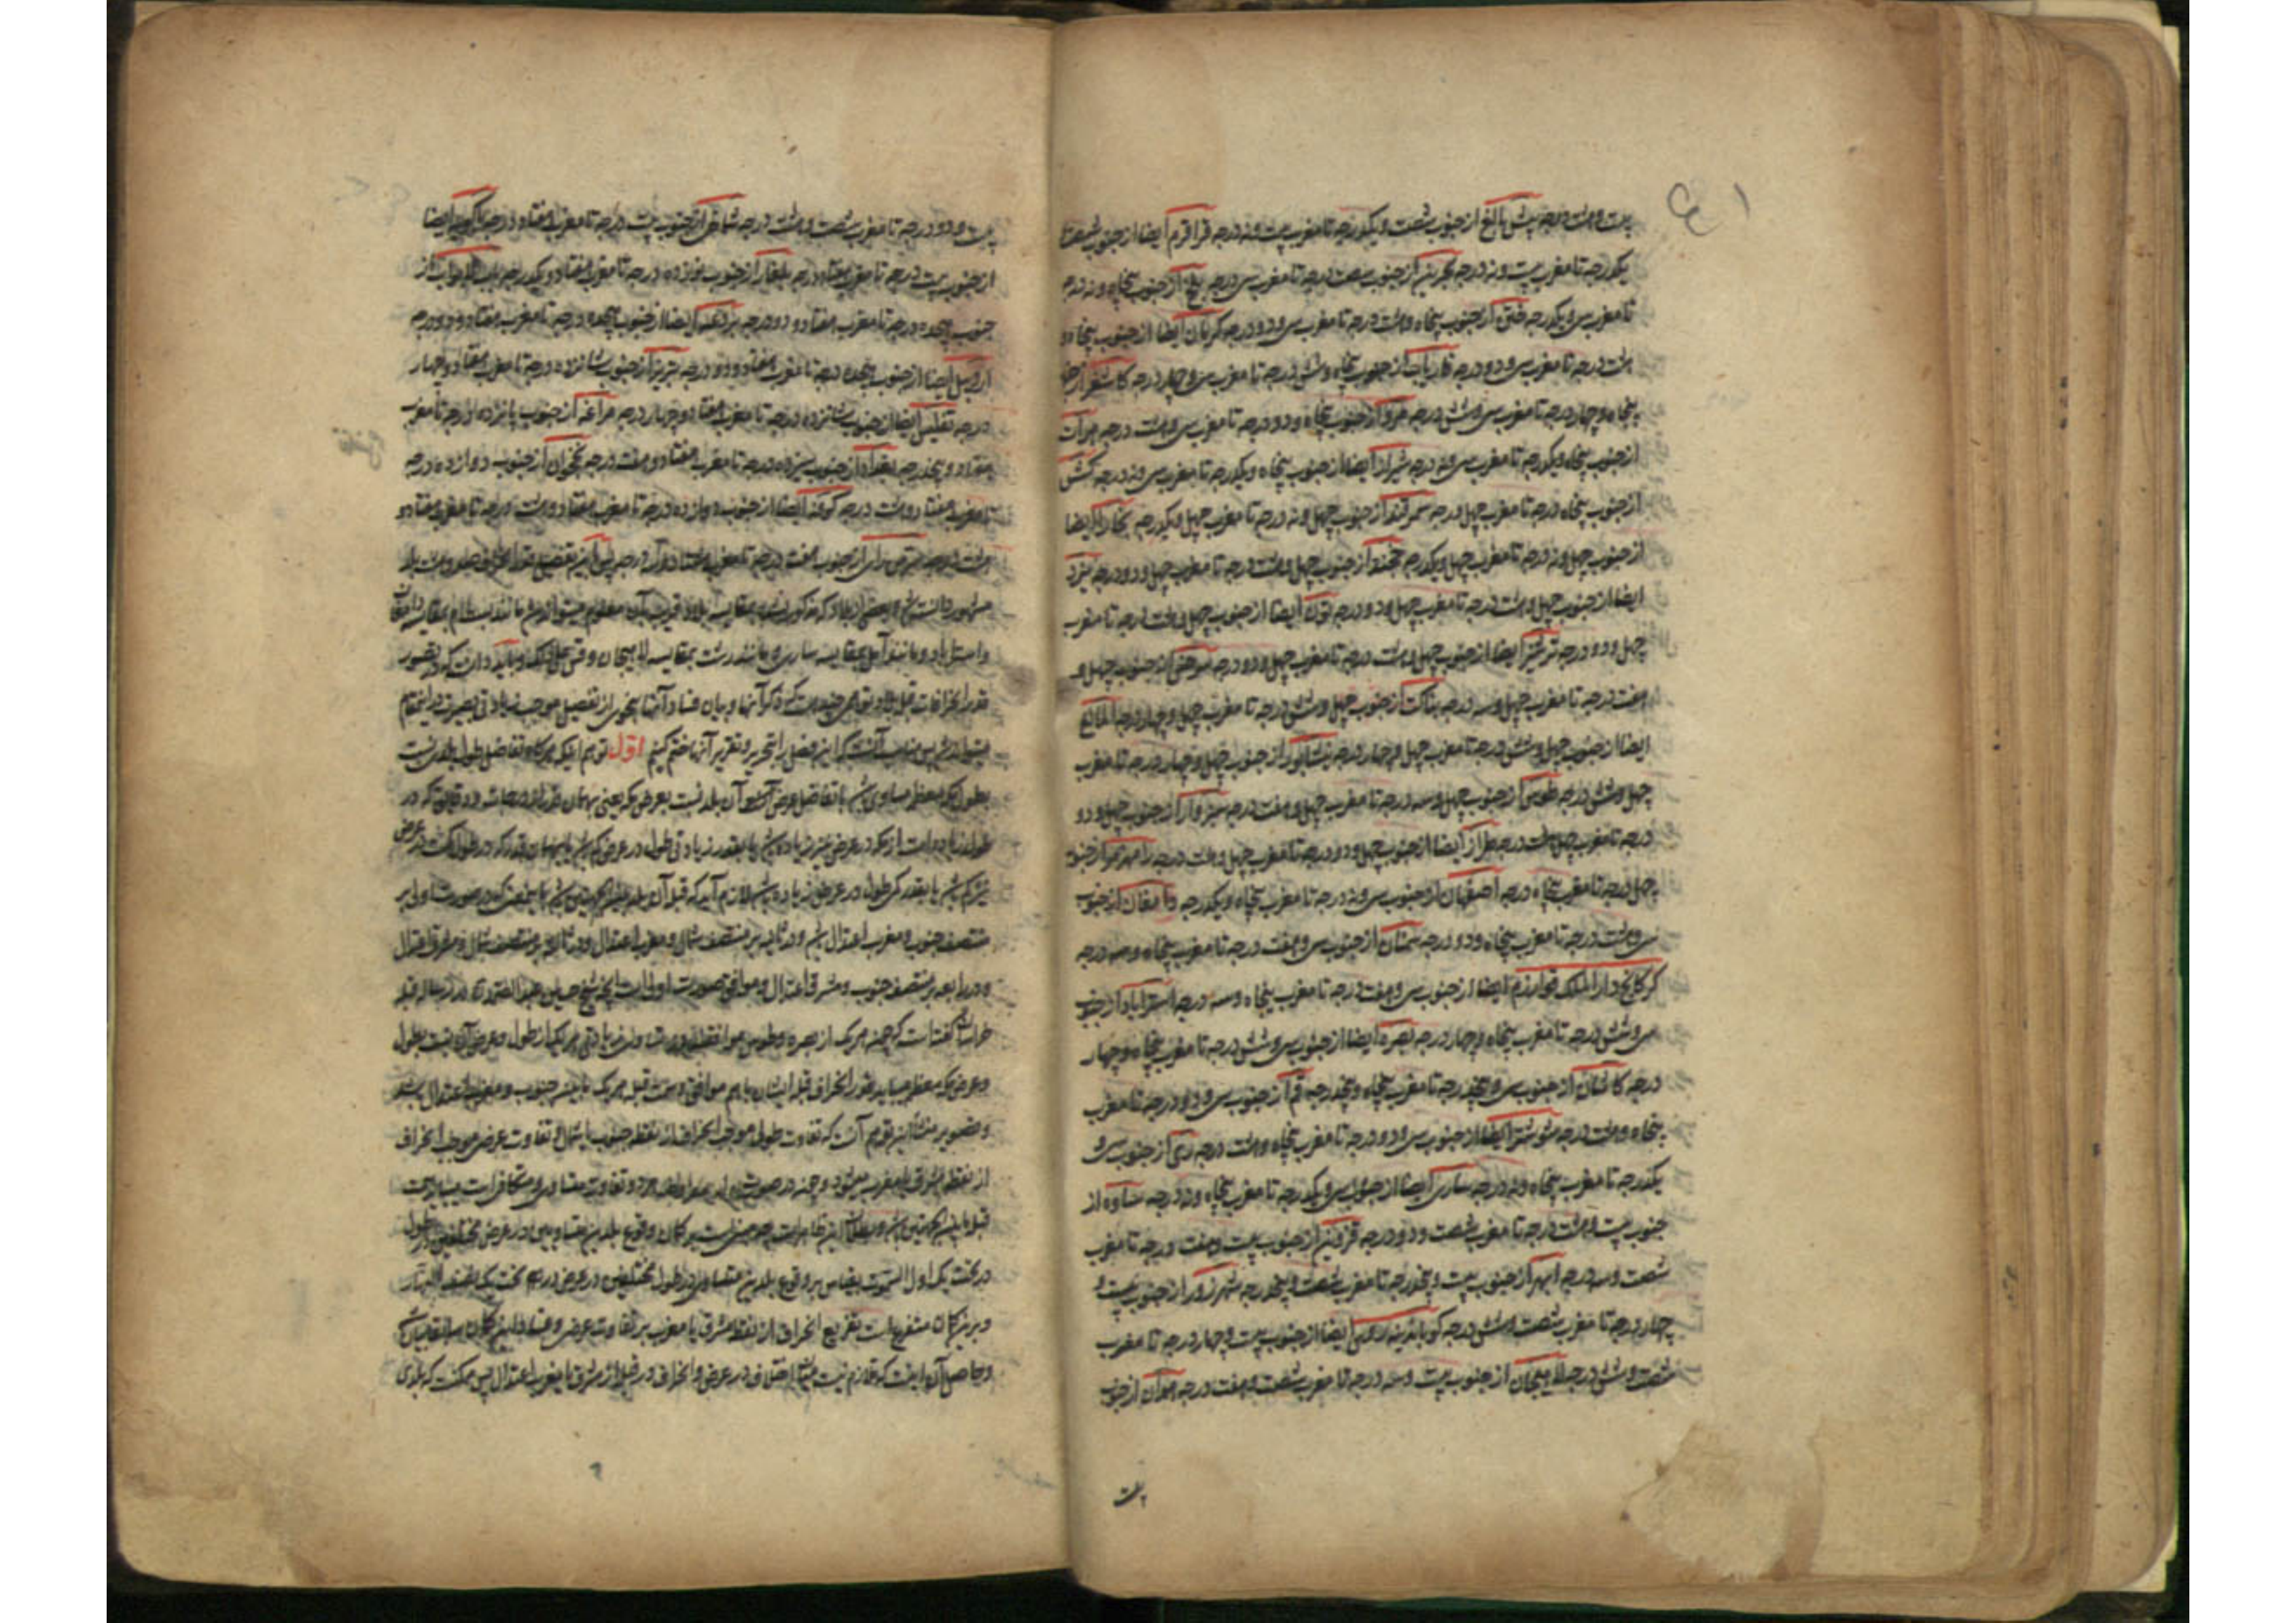 بیست و هشت درجه بیش بالغ از جنوب شصت و یکدرجه تا مغرب بیست و نه درجه قراقرم ایضا از جنوب شصت
یکدرجه تا مغرب بیست و نه درجه بحرین از جنوب شصت درجه تا مغرب سی درجه بلخ از جنوب پنجاه و نه درجه
تا مغرب سی و یکدرجه ختن از جنوب پنجاه و هشت درجه تا مغرب سی و دو درجه کرمان ایضا از جنوب پنجاه و
هشت درجه تا مغرب سی و دو درجه فاریاب از جنوب پنجاه و شش درجه تا مغرب سی و چهار درجه کاشغر از جنوب
پنجاه و چهار درجه تا مغرب سی و شش درجه مرو از جنوب پنجاه و دو درجه تا مغرب سی و هشت درجه هرات
از جنوب پنجاه و یکدرجه تا مغرب سی و نه درجه شیراز ایضا از جنوب پنجاه و یکدرجه تا مغرب سی و نه درجه کش
از جنوب پنجاه درجه تا مغرب چهل درجه سمرقند از جنوب چهل و نه درجه تا مغرب چهل و یکدرجه بخارا ایضا
از جنوب چهل و نه درجه تا مغرب چهل و یکدرجه خجند از جنوب چهل و هشت درجه تا مغرب چهل و دو درجه یزد
ایضا از جنوب چهل و هشت درجه تا مغرب چهل و دو درجه تون ایضا از جنوب چهل و هشت درجه تا مغرب
چهل و دو درجه ترشیز ایضا از جنوب چهل و هشت درجه تا مغرب چهل و دو درجه از جنوب چهل و
هفت درجه تا مغرب چهل و سه درجه بناکت از جنوب چهل و شش درجه تا مغرب چهل و چهار درجه المالیغ
ایضا از جنوب چهل و شش درجه تا مغرب چهل و چهار درجه نیشابور از جنوب چهل و چهار درجه تا مغرب
چهل و شش درجه طوس از جنوب چهل و سه درجه تا مغرب چهل و هفت درجه سبزوار از جنوب چهل و دو
درجه تا مغرب چهل و هشت درجه طراز ایضا از جنوب چهل و دو درجه تا مغرب چهل و هشت درجه رامهرمز از جنوب
چهل درجه تا مغرب پنجاه درجه اصفهان از جنوب سی و نه درجه تا مغرب پنجاه و یکدرجه دامغان از جنوب
سی و هشت درجه تا مغرب پنجاه و دو درجه سمنان از جنوب سی و هفت درجه تا مغرب پنجاه و سه درجه
کرکانج دار الملک خوارزم ایضا از جنوب سی و هفت درجه تا مغرب پنجاه و سه درجه استراباد از جنوب
سی و شش درجه تا مغرب پنجاه و چهار درجه بصره ایضا از جنوب سی و شش درجه تا مغرب پنجاه و چهار
درجه کاشان از جنوب سی و پنجدرجه تا مغرب پنجاه و پنجدرجه قم از جنوب سی و دو درجه تا مغرب
پنجاه و هشت درجه شوشتر ایضا از جنوب سی و دو درجه تا مغرب پنجاه و هشت درجه ری از جنوب سی و
یکدرجه تا مغرب پنجاه و نه درجه ساری ایضا از جنوب سی و یکدرجه تا مغرب پنجاه و نه درجه ساوه از
جنوب بیست و هشت درجه تا مغرب شصت و دو درجه قزوین از جنوب بیست و هفت درجه تا مغرب
شصت و سه درجه ابهر از جنوب بیست و پنجدرجه تا مغرب شصت و پنجدرجه شهرزور از جنوب بیست و
چهار درجه تا مغرب شصت و شش درجه ایضا از جنوب بیست و چهار درجه تا مغرب
شصت و شش درجه لاهیجان از جنوب بیست و سه درجه تا مغرب شصت و هفت درجه همدان از جنوب
بیست
بیست و دو درجه تا مغرب شصت و هشت درجه شماخی از جنوب بیست درجه تا مغرب هفتاد درجه ایضا
از جنوب بیست درجه تا مغرب هفتاد درجه بلغار از جنوب نوزده درجه تا مغرب هفتاد و یکدرجه باب الابواب از
جنوب هجده درجه تا مغرب هفتاد و دو درجه بردعه ایضا از جنوب هجده درجه تا مغرب هفتاد و دو درجه
اردبیل ایضا از جنوب هجده درجه تا مغرب هفتاد و دو درجه تبریز از جنوب شانزده درجه تا مغرب هفتاد و چهار
درجه تفلیس ایضا از جنوب شانزده درجه تا مغرب هفتاد و چهار درجه مراغه از جنوب پانزده درجه تا مغرب
هفتاد و پنجدرجه بغداد از جنوب سیزده درجه تا مغرب هفتاد و هفت درجه نخجوان از جنوب دوازده درجه
تا مغرب هفتاد و هشت درجه کوفه ایضا از جنوب دوازده درجه تا مغرب هفتاد و هشت درجه تا مغرب هفتاد و
هشت درجه سر من رای از جنوب هفت درجه تا مغرب هشتاد و درجه پس این تفصیل قدر انحراف
مشهور دانسته شد و بعضی از بلاد که مذکور نشد بمقایسه بلاد قریب بآن معلوم میتواند شد مانند بسطام بمقایسه دامغان
و استراباد و مانند آمل بمقایسه ساری و مانند رشت بمقایسه لاهیجان و قس علی ذلک و باید دانست که در تصویر
قدر انحرافات قبله بلاد که ذکر آنها و بیان فساد آنها بنحوی از تفصیل موجب زیادتی بصیرت در این مقام
میتواند شد پس مناسب آنست که این فصل را بتحریر و تقریر آنها ختم کنیم اول توهم اینکه هرگاه تفاضل طول بلد نسبت
بطول مکه معظمه مساوی باشد با تفاضل عرض آن بلد نسبت بعرض مکه یعنی بهمان قدر که در
طول زیاده است از مکه در عرض نیز زیاده باشد یا بقدر زیادتی طول در عرض کم باشد یا بهمان قدر که در طول کمست در عرض
نیز کم باشد یا بقدر کمی طول در عرض زیاده باشد لازم آید که قبله آن بلد
منتصف جنوب و مغرب اعتدال باشد و در ثانیه بر منتصف شمال و مغرب اعتدال و در ثالثه بر منتصف شمال و مشرق اعتدال
و در رابعه بر منتصف جنوب و مشرق اعتدال و موافق صورت اولی است آنچه شیخ حسین عبد الصمد در رساله قبله
خراسان گفته است که چون هر یک از بصره و طوس موافقند در تساوی زیادتی هر یک از طول و عرض آن نسبت بطول
و عرض مکه معظمه میباید قدر انحراف قبله ایشان با هم موافق و سمت قبله هر یک ما بین جنوب و مغرب اعتدال باشد
و تصویر منشأ این توهم آنست که تفاوت طول موجب انحراف از نقطه جنوب یا شمال و تفاوت عرض موجب انحراف
از نقطه مشرق یا مغرب میشود و چون در صورت هر دو تفاوت متساوی و متکافی است میباید سمت
قبله ما بین الجهتین باشد و بطلان این ظاهر است چه مبنی است بر امکان وقوع بلدین متساویین در عرض مختلفین در طول
در تحت یک اول السموت بقیاس بر وقوع بلدین متساویین در طول مختلفین در عرض در تحت یک نصف النهار
و بر امکان متفرع است تفریع انحراف از نقطه مشرق یا مغرب بر تفاوت عرض و فساد این امکان
و حاصل آن اینست که لازم نیست اختلاف در عرض و انحراف در قبله از مشرق یا مغرب اعتدال پس ممکنست که بلدی